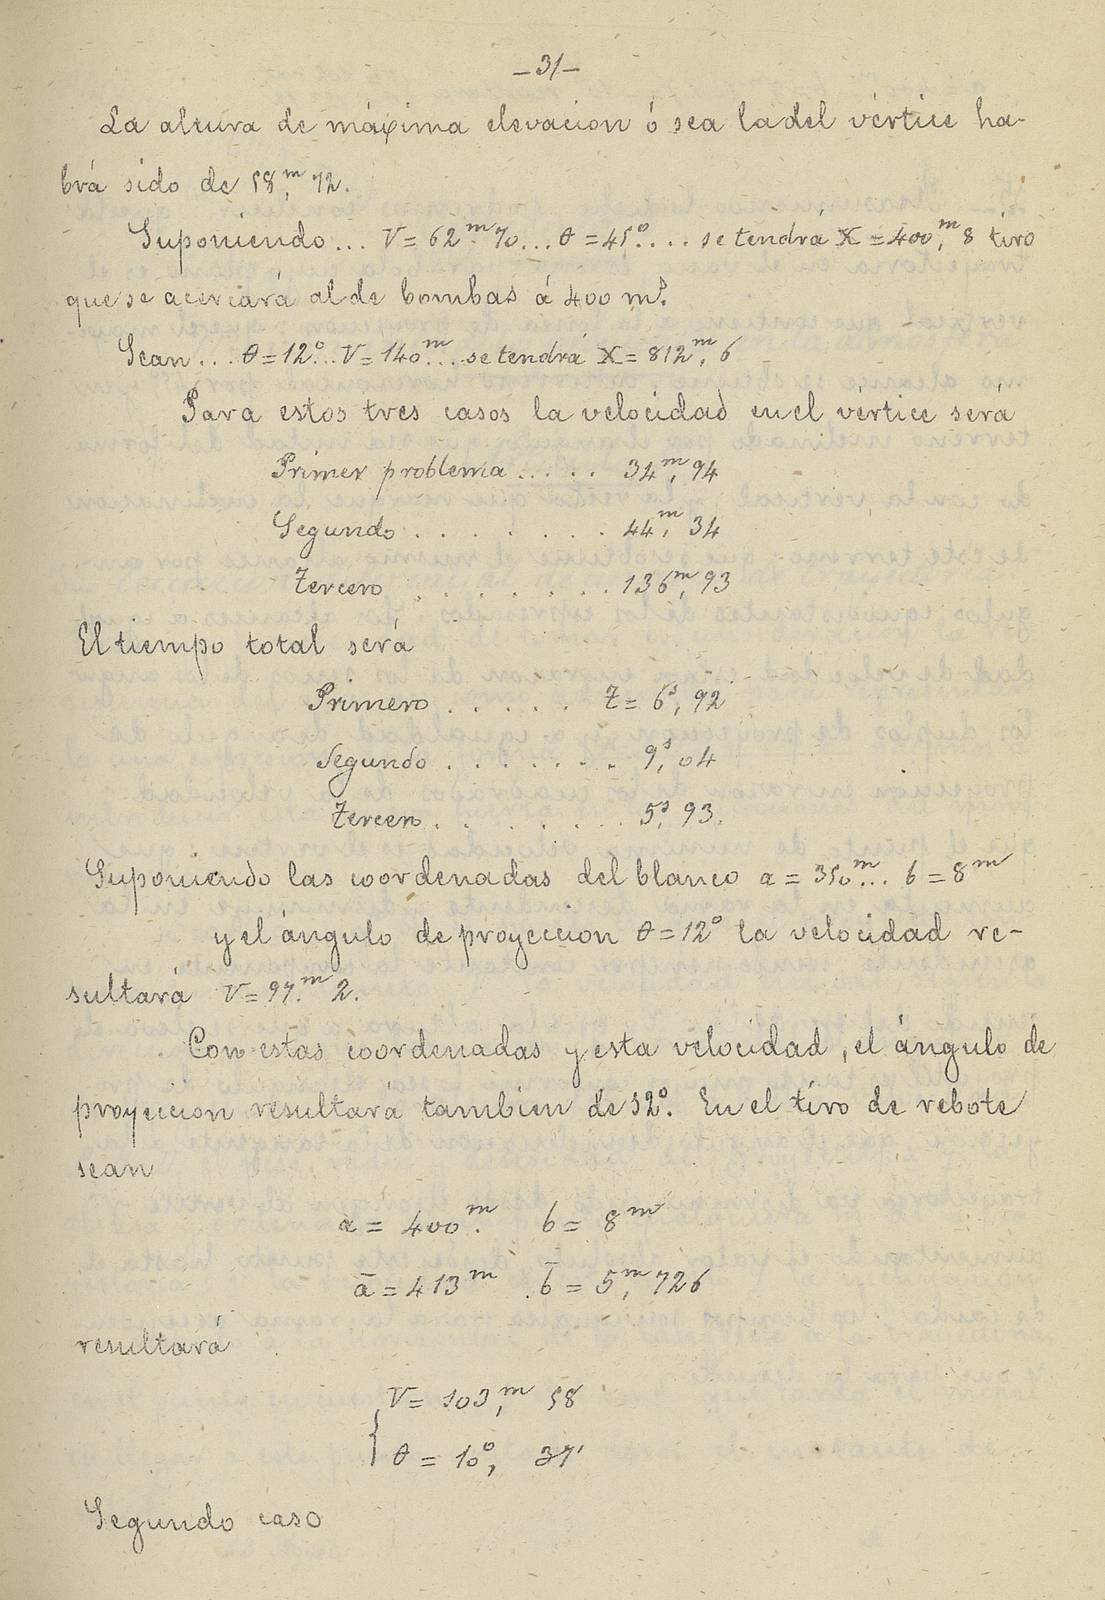 -31-
La altura de máxima elevacion ó sea la del vértice ha-
brá sido de 58,m72.
Suponiendo... V=62m.70... θ=45º.... se tendrá X=400,m8 tiro
que se acercará al de bombas á 400 ms.
Sean... θ=12º... V=140m... se tendrá X=812m,6
Para estos tres casos la velocidad en el vértice será
Primer problema..... 34m,94
Segundo........ 44,m34
Tercero....... 136m,93
El tiempo total será
Primero..... t=6s,92
Segundo....... 9s,04
Tercero....... 5s,93.
Suponiendo las coordenadas del blanco a=350m... b=8m
y el ángulo de proyeccion θ=12º la velocidad re-
sultará V=97.m2.
Con estas coordenadas y esta velocidad, el ángulo de
proyeccion resultará tambien de 12º. En el tiro de rebote
sean
a=400m. b=8m
ā=413m. b̄=5,m726
resultará
{V=103,m58
θ=10º, 37'
Segundo caso